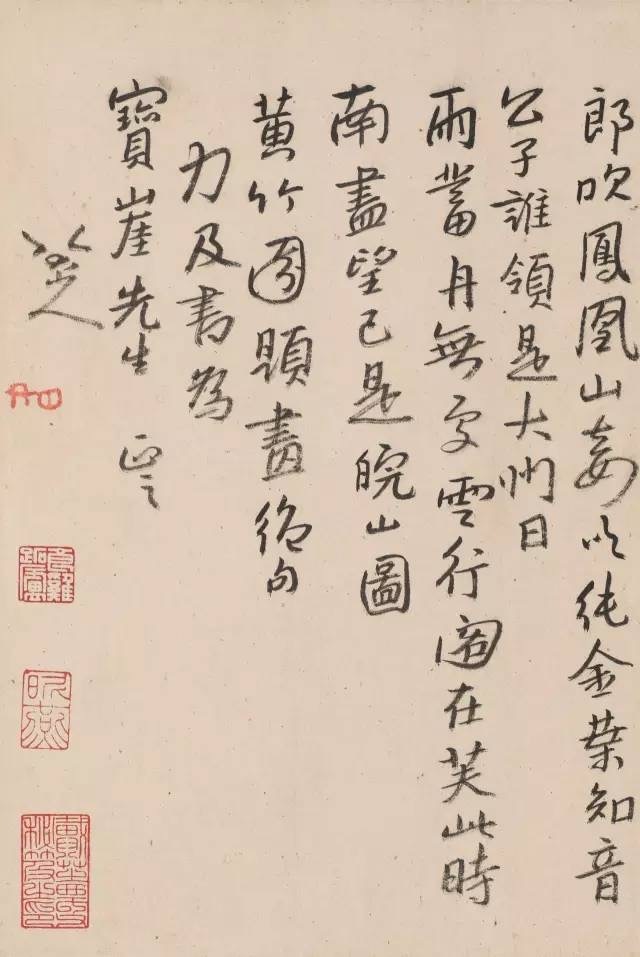 郎吹鳳凰山妾以純金葉知音
公子誰領是大州日
雨蓄舟無雲行在芙此時
南盡望已是皖山圖
黃竹園題畫絕句
力及書為
寶崖先生 正之
八大山人